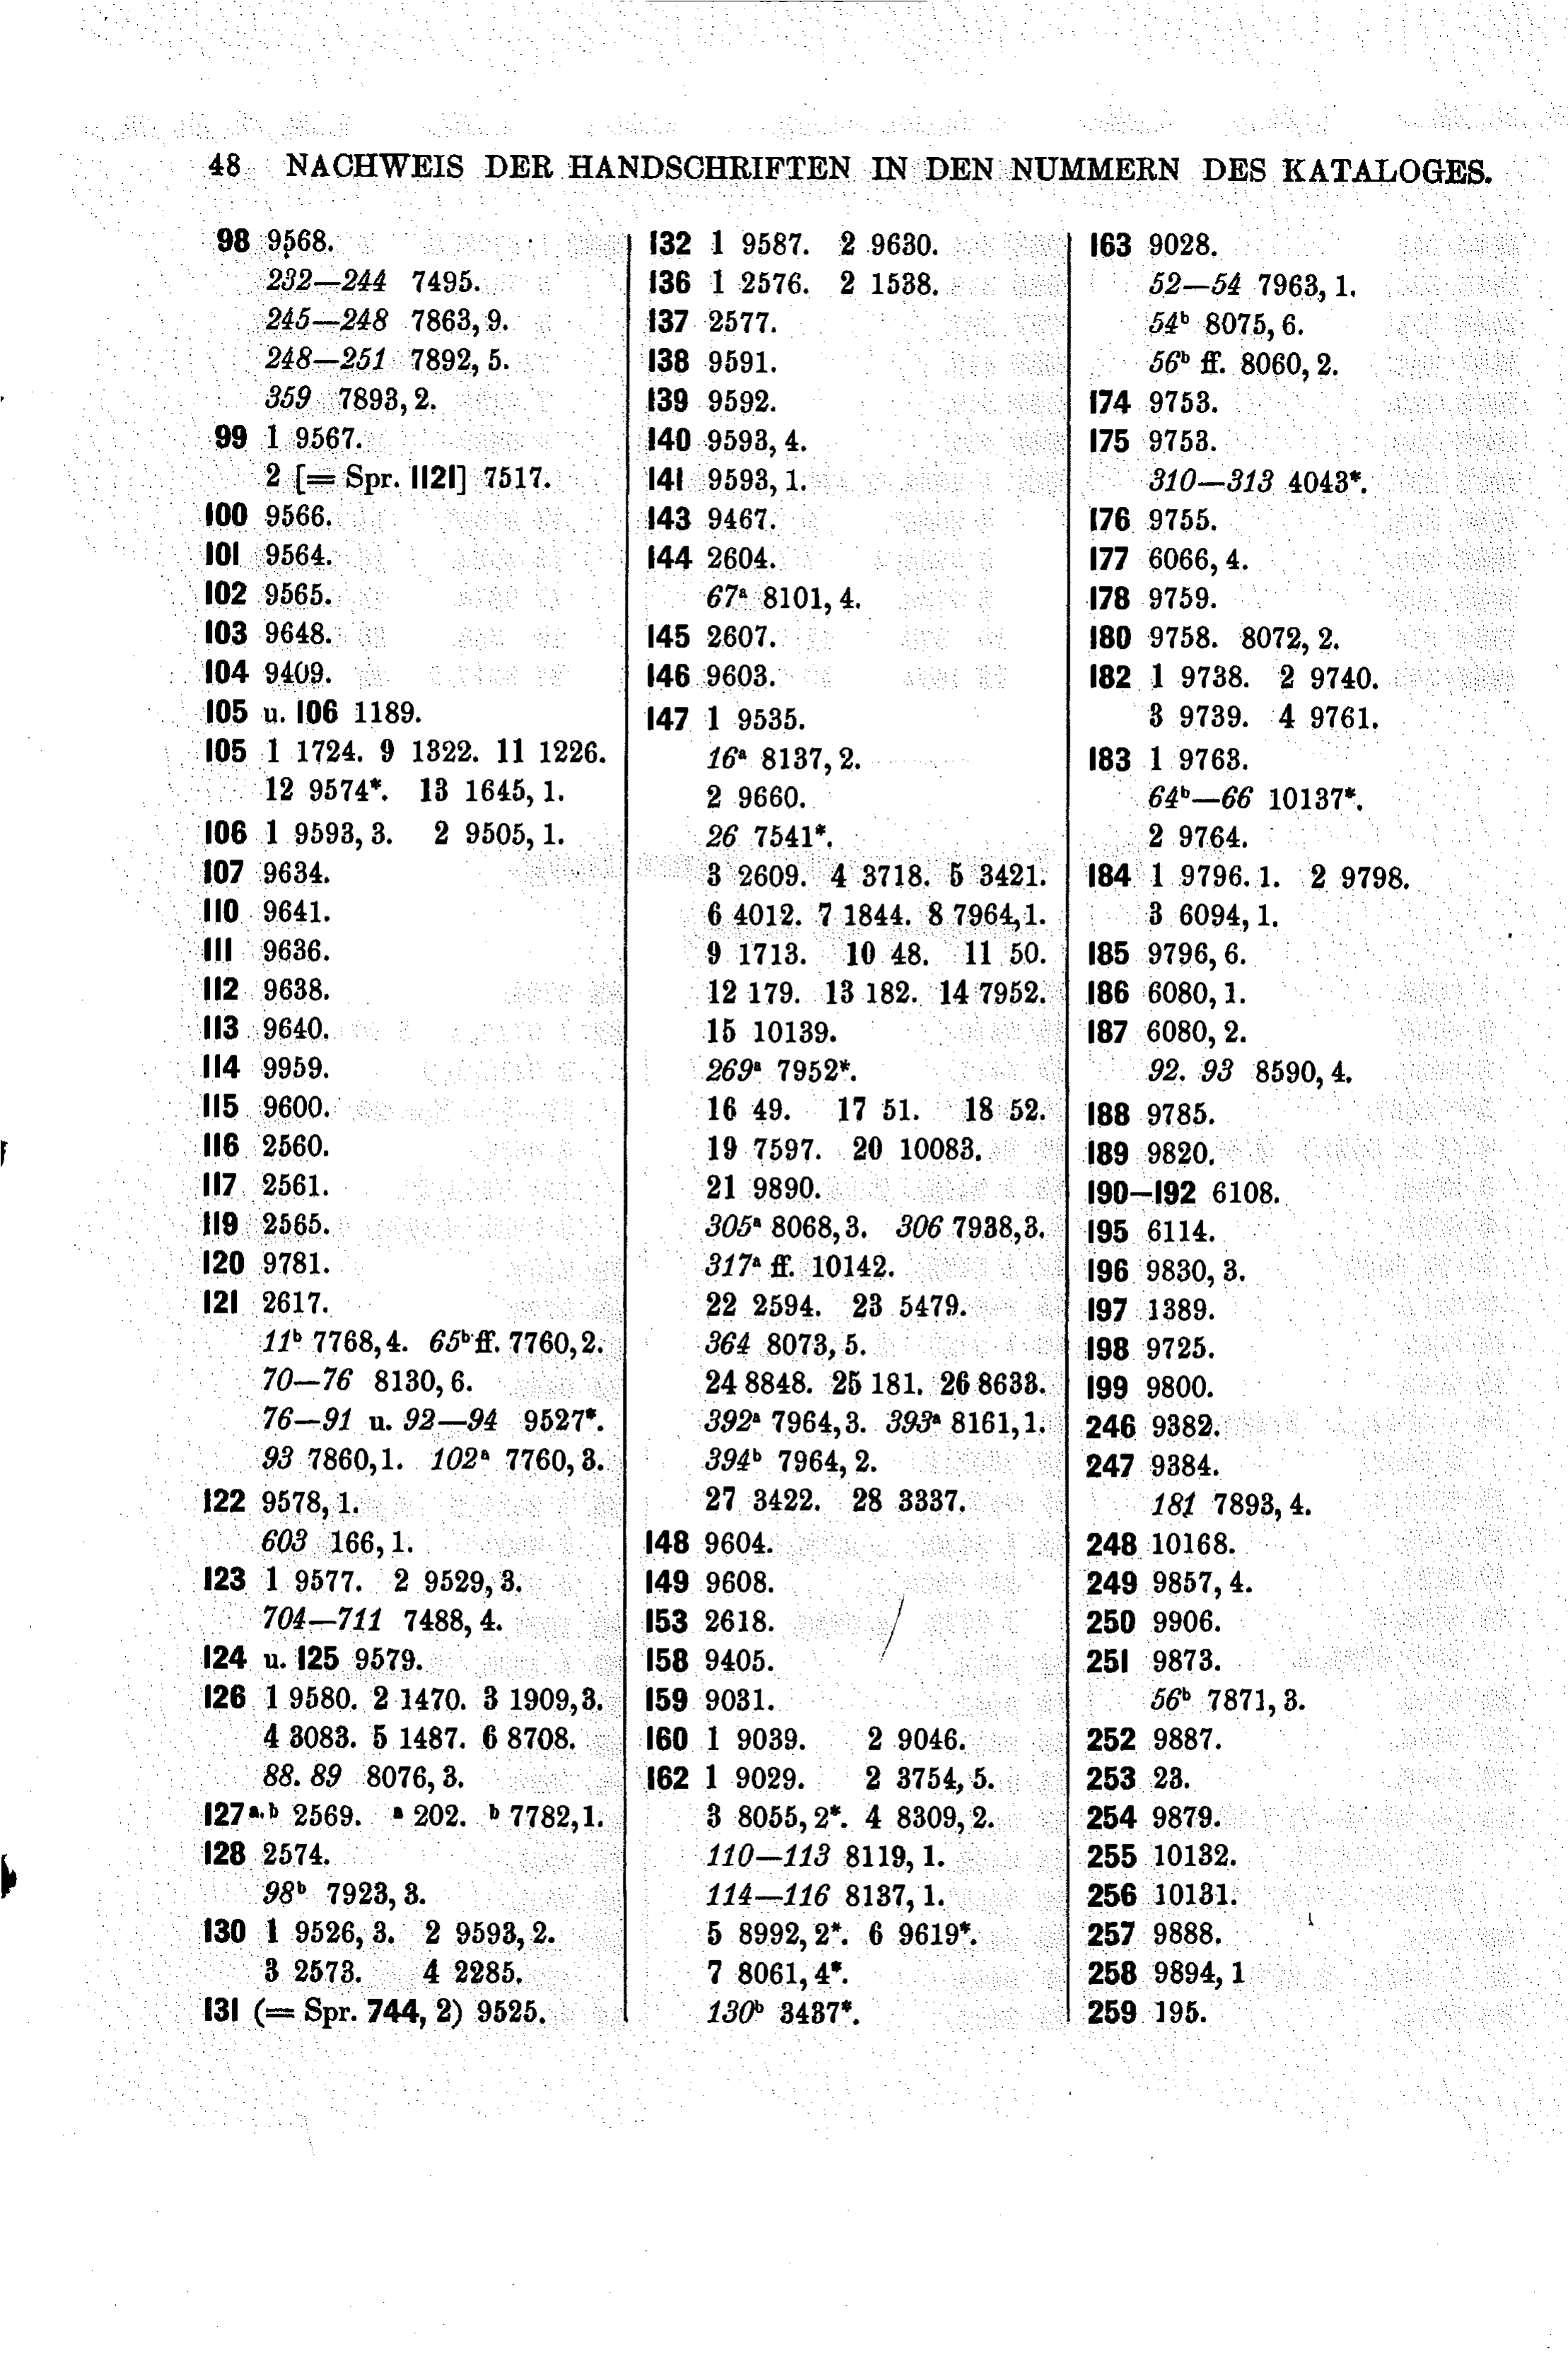 48 NACHWEIS DER HANDSCHRIFTEN IN DEN NUMMERN DES KATALOGES.
98 9568.
232—244 7495.
245—248 7863, 9.
248—251 7892, 5.
359 7893, 2.
99 1 9567.
2 [= Spr. 1121] 7517.
100 9566.
101 9564.
102 9565.
103 9648.
104 9409.
105 u. 106 1189.
105 1 1724. 9 1322. 11 1226.
12 9574*. 13 1645, 1.
106 1 9593, 3. 2 9505, 1.
107 9634.
110 9641.
111 9636.
112 9638.
113 9640.
114 9959.
115 9600.
116 2560.
117 2561.
119 2565.
120 9781.
121 2617.
11ᵇ 7768, 4. 65ᵇ ff. 7760, 2.
70—76 8130, 6.
76—91 u. 92—94 9527*.
93 7860, 1. 102ᵃ 7760, 3.
122 9578, 1.
603 166, 1.
123 1 9577. 2 9529, 3.
704—711 7488, 4.
124 u. 125 9579.
126 1 9580. 2 1470. 3 1909, 3.
4 3083. 5 1487. 6 8708.
88. 89 8076, 3.
127ᵃ·ᵇ 2569. ᵃ 202. ᵇ 7782, 1.
128 2574.
98ᵇ 7923, 3.
130 1 9526, 3. 2 9593, 2.
3 2573. 4 2285.
131 (= Spr. 744, 2) 9525.
132 1 9587. 2 9630.
136 1 2576. 2 1538.
137 2577.
138 9591.
139 9592.
140 9593, 4.
141 9593, 1.
143 9467.
144 2604.
67ᵃ 8101, 4.
145 2607.
146 9603.
147 1 9535.
16ᵃ 8137, 2.
2 9660.
26 7541*.
3 2609. 4 3718. 5 3421.
6 4012. 7 1844. 8 7964, 1.
9 1713. 10 48. 11 50.
12 179. 13 182. 14 7952.
15 10139.
269ᵃ 7952*.
16 49. 17 51. 18 52.
19 7597. 20 10083.
21 9890.
305ᵃ 8068, 3. 306 7938, 3.
317ᵃ ff. 10142.
22 2594. 23 5479.
364 8073, 5.
24 8848. 25 181. 26 8633.
392ᵃ 7964, 3. 393ᵃ 8161, 1.
394ᵇ 7964, 2.
27 3422. 28 3337.
148 9604.
149 9608.
153 2618.
158 9405.
159 9031.
160 1 9039. 2 9046.
162 1 9029. 2 3754, 5.
3 8055, 2*. 4 8309, 2.
110—113 8119, 1.
114—116 8137, 1.
5 8992, 2*. 6 9619*.
7 8061, 4*.
130ᵇ 3437*.
163 9028.
52—54 7963, 1.
54ᵇ 8075, 6.
56ᵇ ff. 8060, 2.
174 9753.
175 9753.
310—313 4043*.
176 9755.
177 6066, 4.
178 9759.
180 9758. 8072, 2.
182 1 9738. 2 9740.
3 9739. 4 9761.
183 1 9763.
64ᵇ—66 10137*.
2 9764.
184 1 9796. 1. 2 9798.
3 6094, 1.
185 9796, 6.
186 6080, 1.
187 6080, 2.
92. 93 8590, 4.
188 9785.
189 9820.
190—192 6108.
195 6114.
196 9830, 3.
197 1389.
198 9725.
199 9800.
246 9382.
247 9384.
181 7893, 4.
248 10168.
249 9857, 4.
250 9906.
251 9873.
56ᵇ 7871, 3.
252 9887.
253 23.
254 9879.
255 10132.
256 10131.
257 9888.
258 9894, 1
259 195.